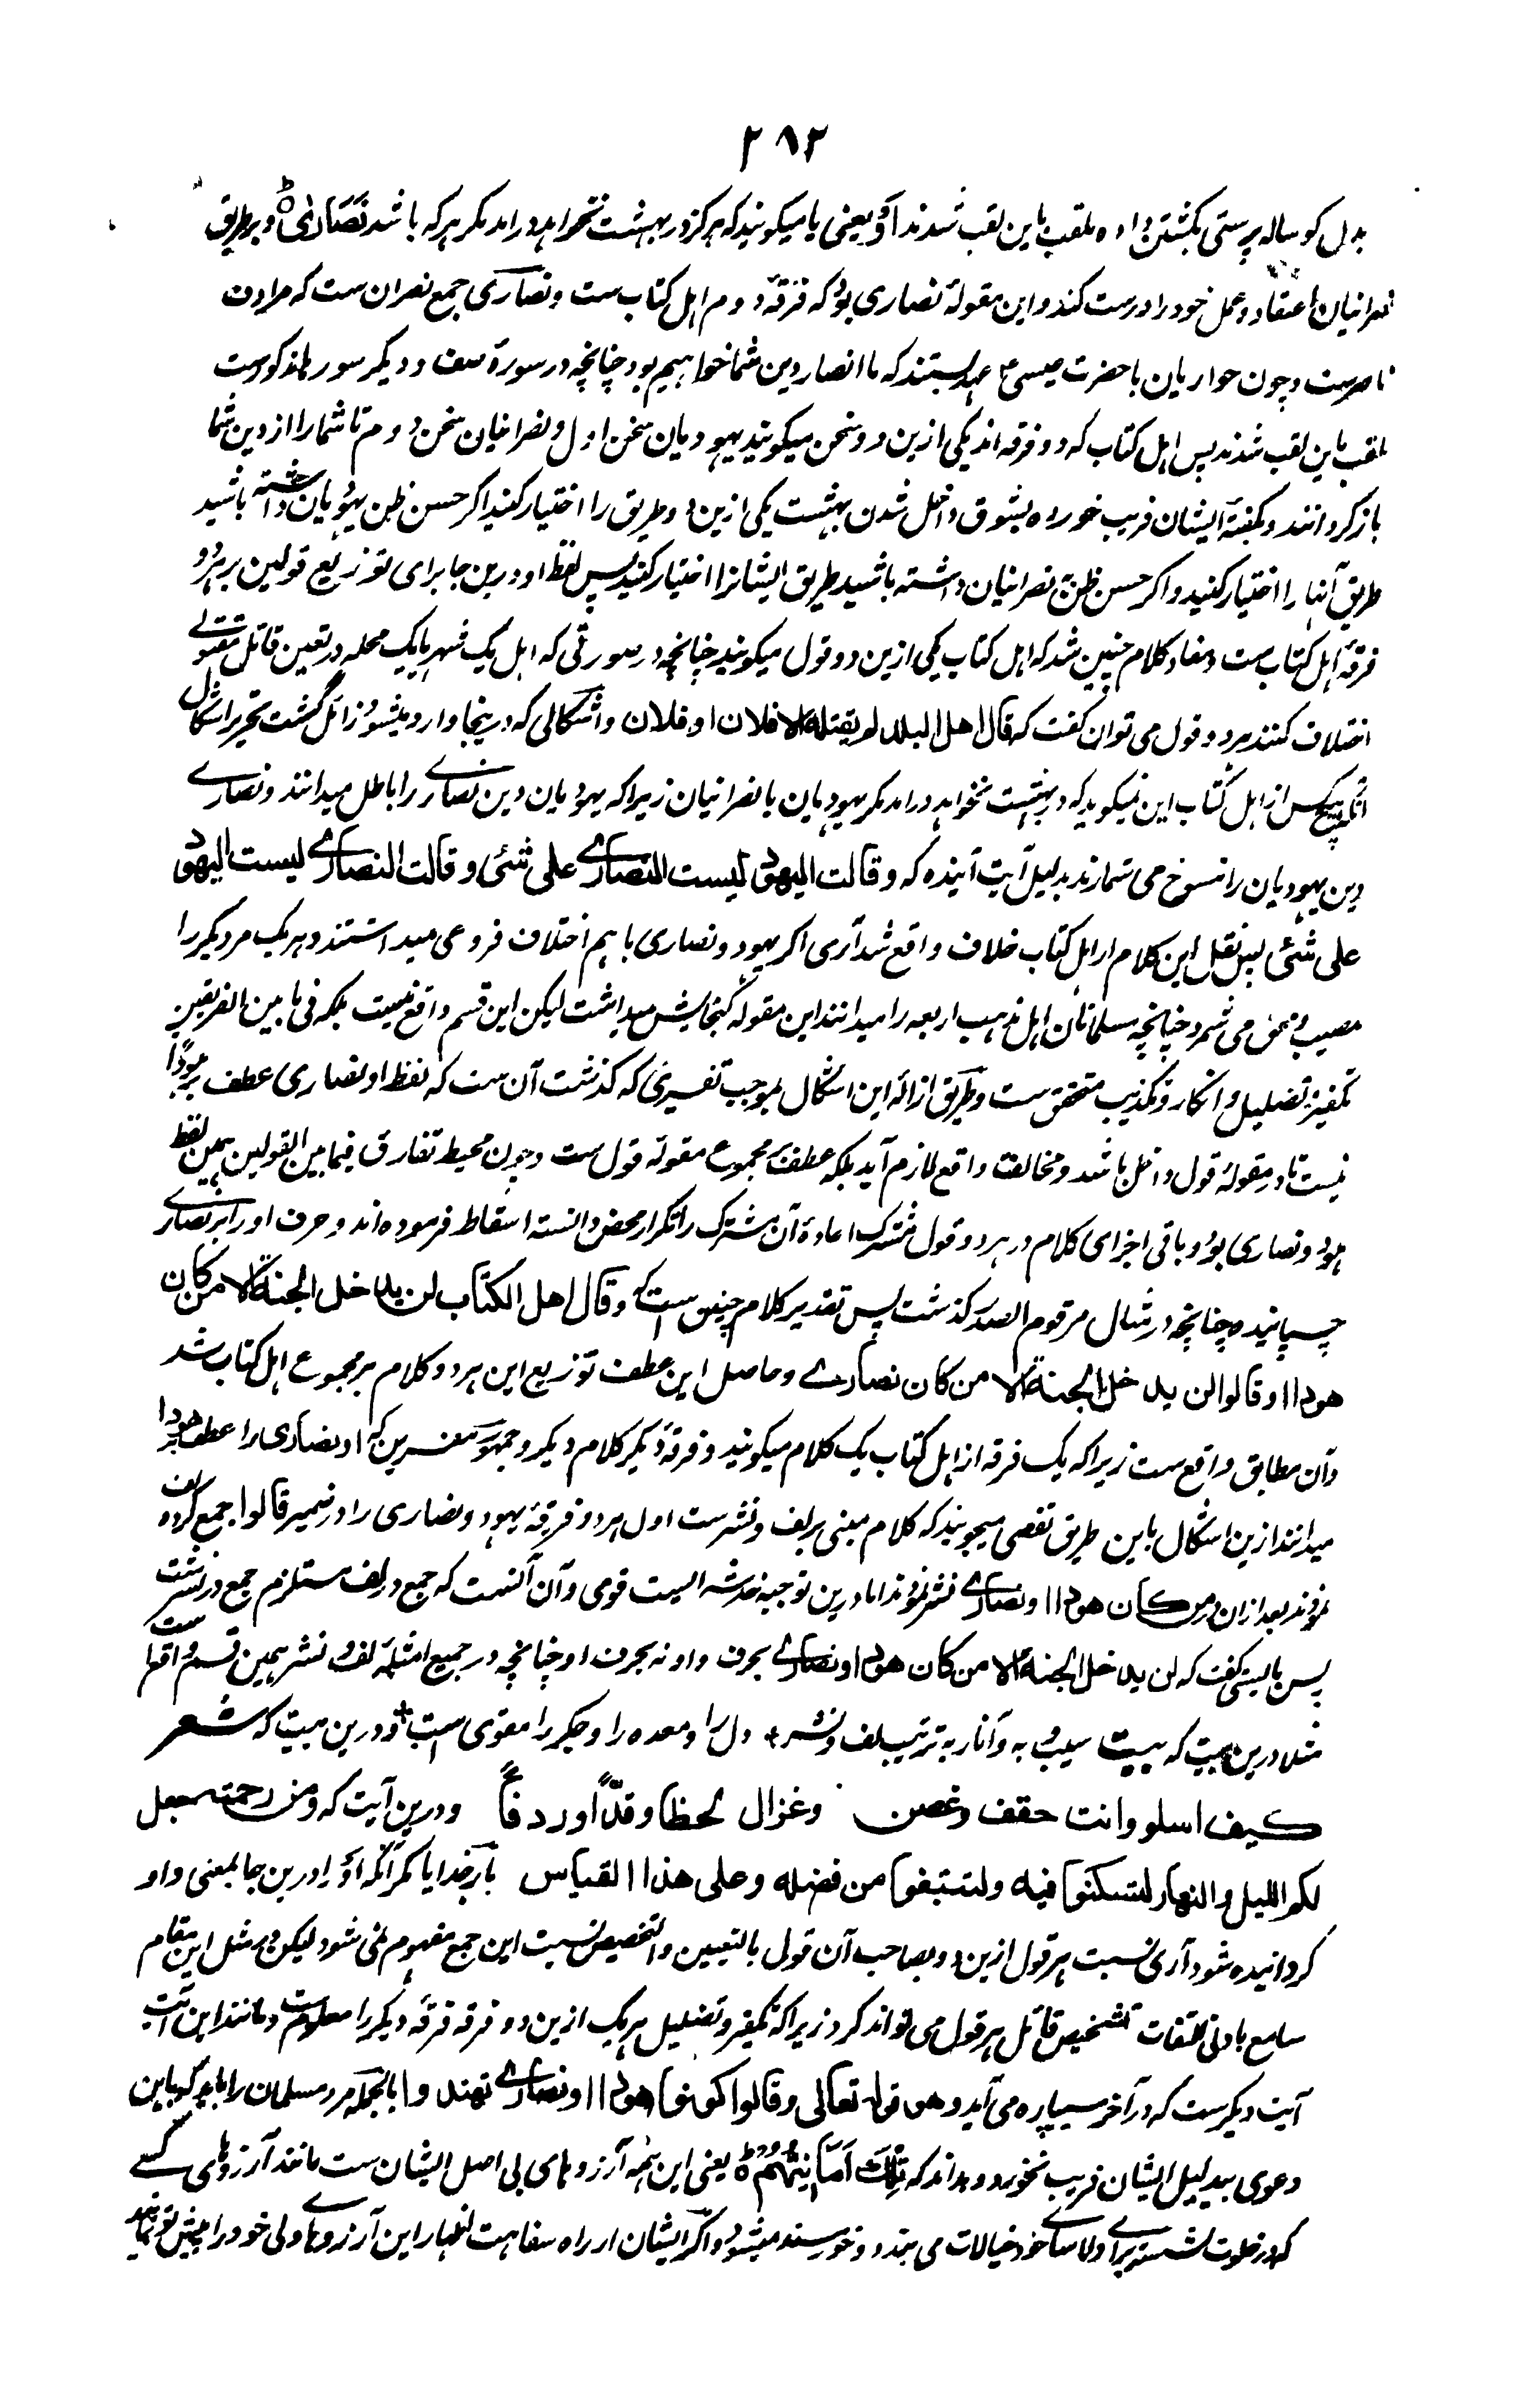 ۲۸۲
بدل کوساله پرستی بکشتن داده ملقب باین لقب شدند اَوْ یعنی یا میکویند که هرکز در بهشت نخواهد درامد مکر هرکه باشد نَصَارٰی و بر طریق
نصرانیان اعتقاد و عمل خود را درست کند و این مقولهٔ نصاری بود که فرقهٔ دوم اهل کتاب ست و نصاری جمع نصران ست که مرادف
ناصرست و چون حواریان با حضرت عیسی ع عهد بستند که ما انصار دین شما خواهیم بود چنانچه در سورهٔ صف و دیکر سور مذکورست
ملقب باین لقب شدند پس اهل کتاب که دو فرقه اند یکی ازین دو سخن میکویند یهودیان سخن اول و نصرانیان سخن دوم تا شما را از دین شما
باز کردانند و بکفتهٔ ایشان فریب خورده بشوق داخل شدن بهشت یکی ازین دو طریق را اختیار کنید اکر حسن ظن به یهودیان داشته باشید
طریق آنها را اختیار کنید و اکر حسن ظن به نصرانیان داشته باشید طریق ایشانرا اختیار کنید پس لفظ او درین جا برای توزیع قولین بر هر دو
فرقهٔ اهل کتاب ست و مفاد کلام چنین شد که اهل کتاب یکی ازین دو قول میکویند چنانچه در صورتی که اهل یک شهر یا یک محله در تعین قاتل مقتولے
اختلاف کنند بر دو قول می توان کفت که قال اهل البلد لم یقتله الا فلان او فلان و اشکالی که درینجا وارد میشود زائل کشت تحریر اشکال
آنکه هیچکس از اهل کتاب این نمیکوید که در بهشت نخواهد درامد مکر یهودیان یا نصرانیان زیرا که یهودیان دین نصارے را باطل میدانند و نصارے
دین یهودیان را منسوخ می شمارند بدلیل آیت آینده که و قالت الیهود لیست النصارے علی شئی و قالت النصارے لیست الیهود
علی شئی پس نقل این کلام از اهل کتاب خلاف واقع شد آری اکر یهود و نصاری باهم اختلاف فروعی میداشتند و هریک مر دیکر را
مصیب و محق می شمرد چنانچه مسلمانان اهل مذهب اربعه را میدانند این مقوله کنجایش میداشت لیکن این قسم واقع نیست بلکه فی ما بین الفریقین
تکفیر و تضلیل و انکار و تکذیب متحقق ست و طریق ازالهٔ این اشکال بموجب تفسیری که کذشت آن ست که لفظ او نصاری عطف بر هودًا
نیست تا در مقولهٔ قول داخل باشد و مخالفت واقع لازم آید بلکه عطف بر مجموع مقولهٔ قول ست و چون محیط تفارق فیما بین القولین همین لفظ
هود و نصاری بود و باقی اجزای کلام در هر دو قول مشترک اعادهٔ آن مشترک را تکرار محض دانسته اسقاط فرموده اند و حرف او را بر نصارے
چسپانیده چنانچه در مثال مرقوم الصدر کذشت پس تقدیر کلام چنین ست که و قال اهل الکتاب لن یدخل الجنة الا من کان
هودا او قالوا لن یدخل الجنة الا من کان نصارے و حاصل این عطف توزیع این هر دو کلام بر مجموع اهل کتاب شد
و آن مطابق واقع ست زیرا که یک فرقه از اهل کتاب یک کلام میکویند و فرقهٔ دیکر کلام دیکر و جمهور مفسرین که او نصاری را عطف بر هودا
میدانند ازین اشکال باین طریق تفصی میجویند که کلام مبنی بر لف و نشر ست اول هر دو فرقهٔ یهود و نصاری را در ضمیر قالوا جمع کرده لف
نمودند بعد ازان در من کان هودا او نصارے نشر نمودند اما درین توجیه خدشه ایست قوی و آن آنست که جمع در لف مستلزم جمع در نشر ست
پس بایستی کفت که لن یدخل الجنة الا من کان هودا و نصارے بحرف واو نه بحرف او چنانچه در جمیع امثلهٔ لف و نشر همین قسم واقع ست
مثلا درین بیت که بیت سیب و به و انار به ترتیب لف و نشر * دل را و معده را و جکر را مقوی ست * و درین بیت که شعر
کیف اسلو وانت حقف و غصن وغزال لحظا و قدّاً و ردفاً و درین آیت که و من رحمته جعل
لکم اللیل و النهار لتسکنوا فیه و لتبتغوا من فضله و علی هذا القیاس بار خدایا مکر آنکه اَو را درین جا بمعنی واو
کردانیده شود آری نسبت هر قول ازین دو بصاحب آن قول بالتعیین و التخصیص نسبت این جمع مفهوم نمی شود لیکن در مثل این مقام
سامع بادنی التفات تشخیص قائل هر قول می تواند کرد زیرا که تکفیر و تضلیل هریک ازین دو فرقه فرقهٔ دیکر را معلوم ست و مانند این آیت
آیت دیکرست که در آخر سیپاره می آید و هو قوله تعالی و قالوا کونوا هودا او نصارے تهتدوا بالجمله مرد مسلمان را باید که باین
دعوی بیدلیل ایشان فریب نخورد و بداند که تِلْكَ اَمَانِیُّهُمْ یعنی این همه آرزوهای بی اصل ایشان ست مانند آرزوهای کسے
که در خلوت نشسته براے دلاساے خود خیالات می بندد و خورسند میشود و اکر ایشان از راه سفاهت اظهار این آرزوهاے دلی خود را پیش تو نمایند